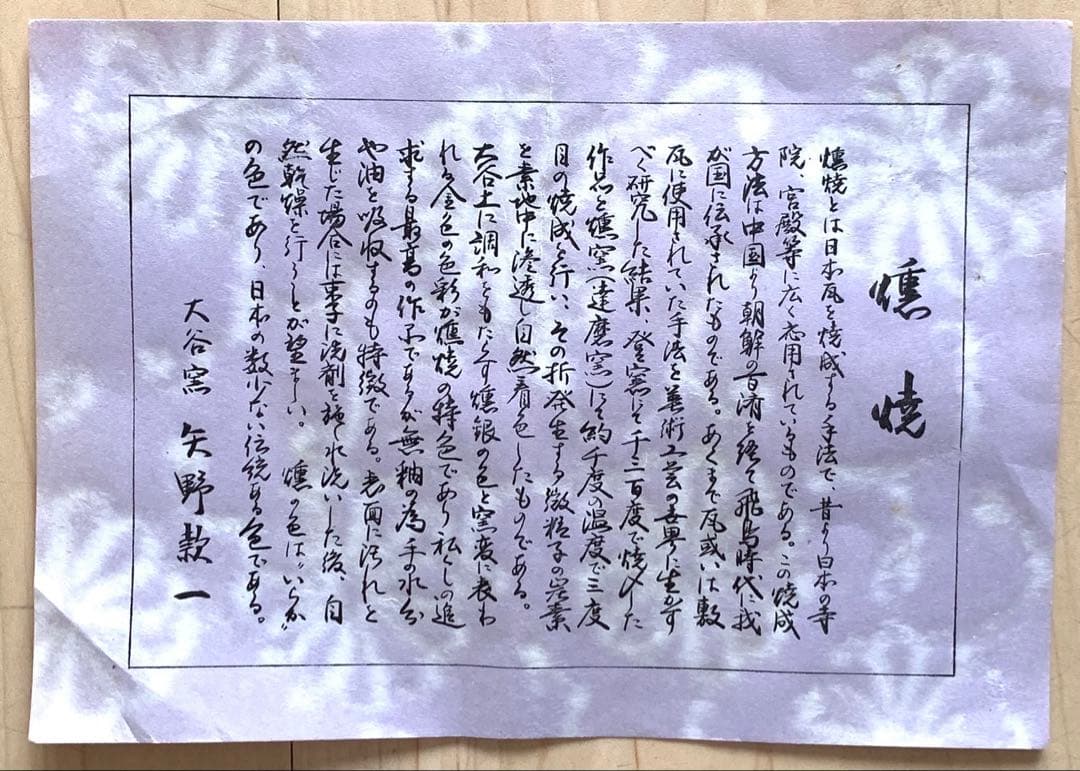 燻焼
燻焼とは日本瓦を焼成する手法で、昔より日本の寺
院、宮殿等に広く応用されているものである。この焼成
方法は中国より朝鮮の百済を経て飛鳥時代に我
が国に伝承されたものである。あくまで瓦或いは敷
瓦に使用されていた手法を美術工芸の世界に生かす
べく研究した結果、登窯にて千二百度で焼〆た
作品を燻窯(達磨窯)にて約千度の温度で三度
目の焼成を行い、その折発生する微粒子の炭素
を素地中に滲透し自然着色したものである。
大谷土に調和をもたらす燻銀の色と窯変に表わ
れる金色の色彩が燻焼の特色であり私しの追
求する最高の作品であるが無釉の為手の水分
や油を吸収するのも特徴である。表面に汚れを
生じた場合には東子に洗剤を施し水洗いした後、自
然幹燥を行うことが望ましい。燻の色は“いらか”
の色であり、日本の数少ない伝統ある色である。
大谷窯 矢野款一